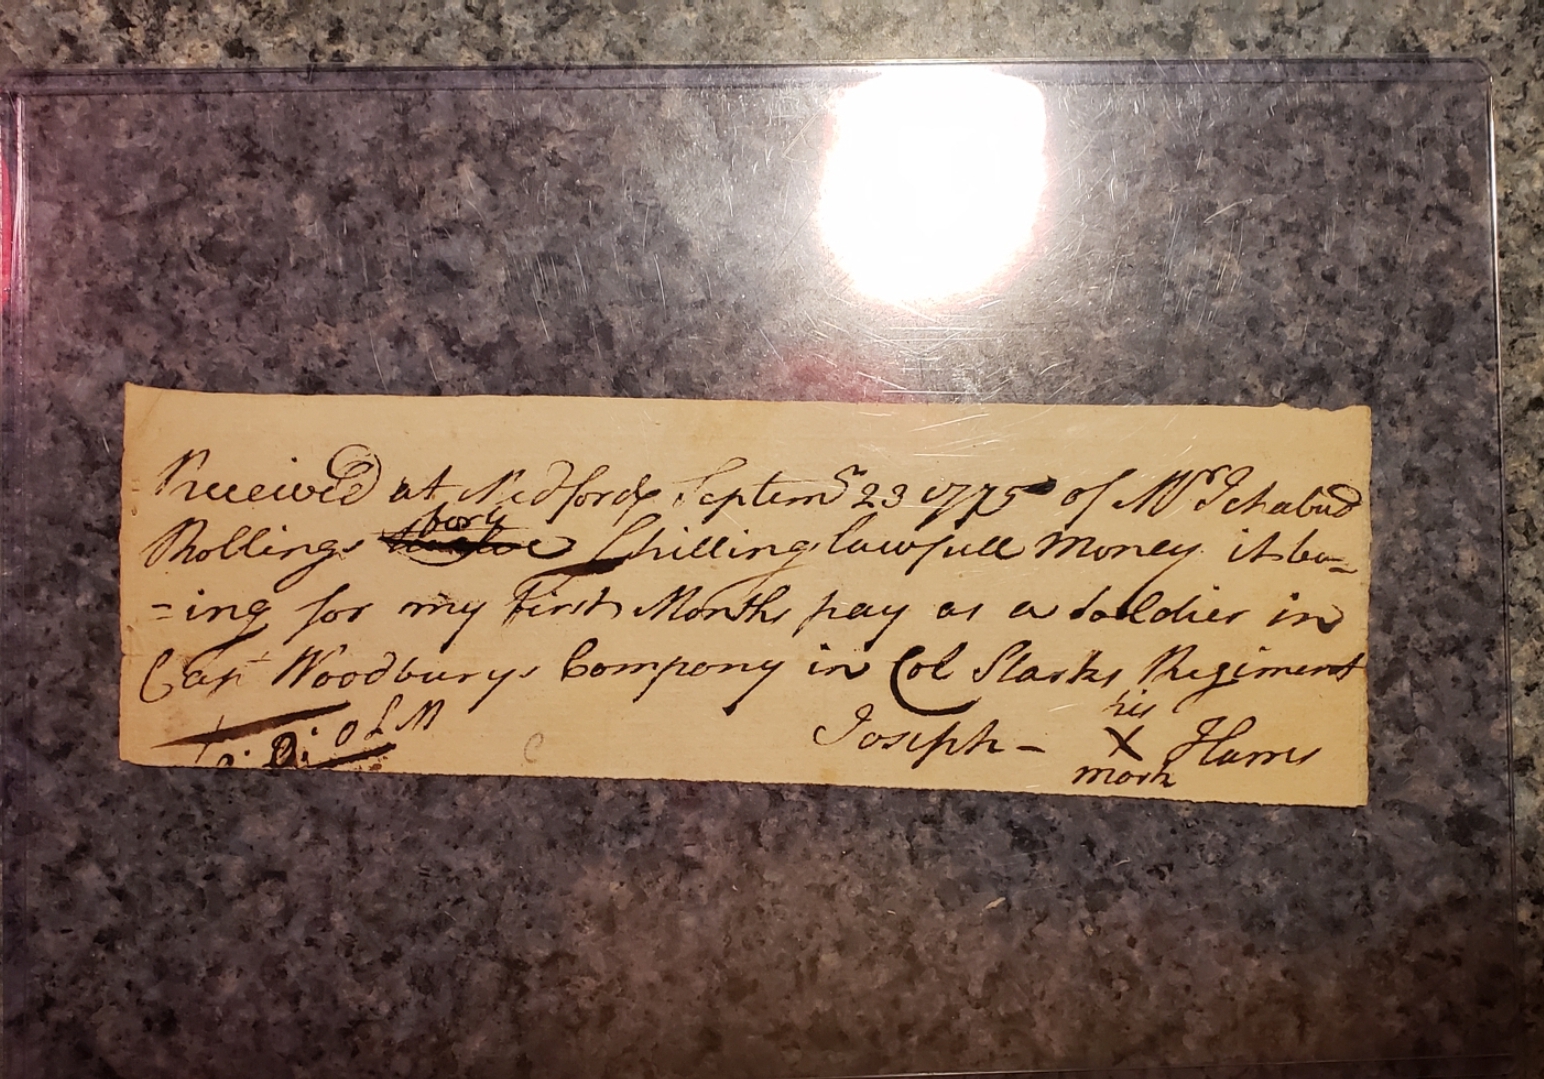 Received at Medford Septemr 23 1775 of Mr Ichabud
forty
Rollings twelve Shillings lawfull Money it be=
=ing for my first Months pay as a Soldier in
Capt Woodburys Company in Col Starks Regiment
his
Joseph - X Harris
mark
LM